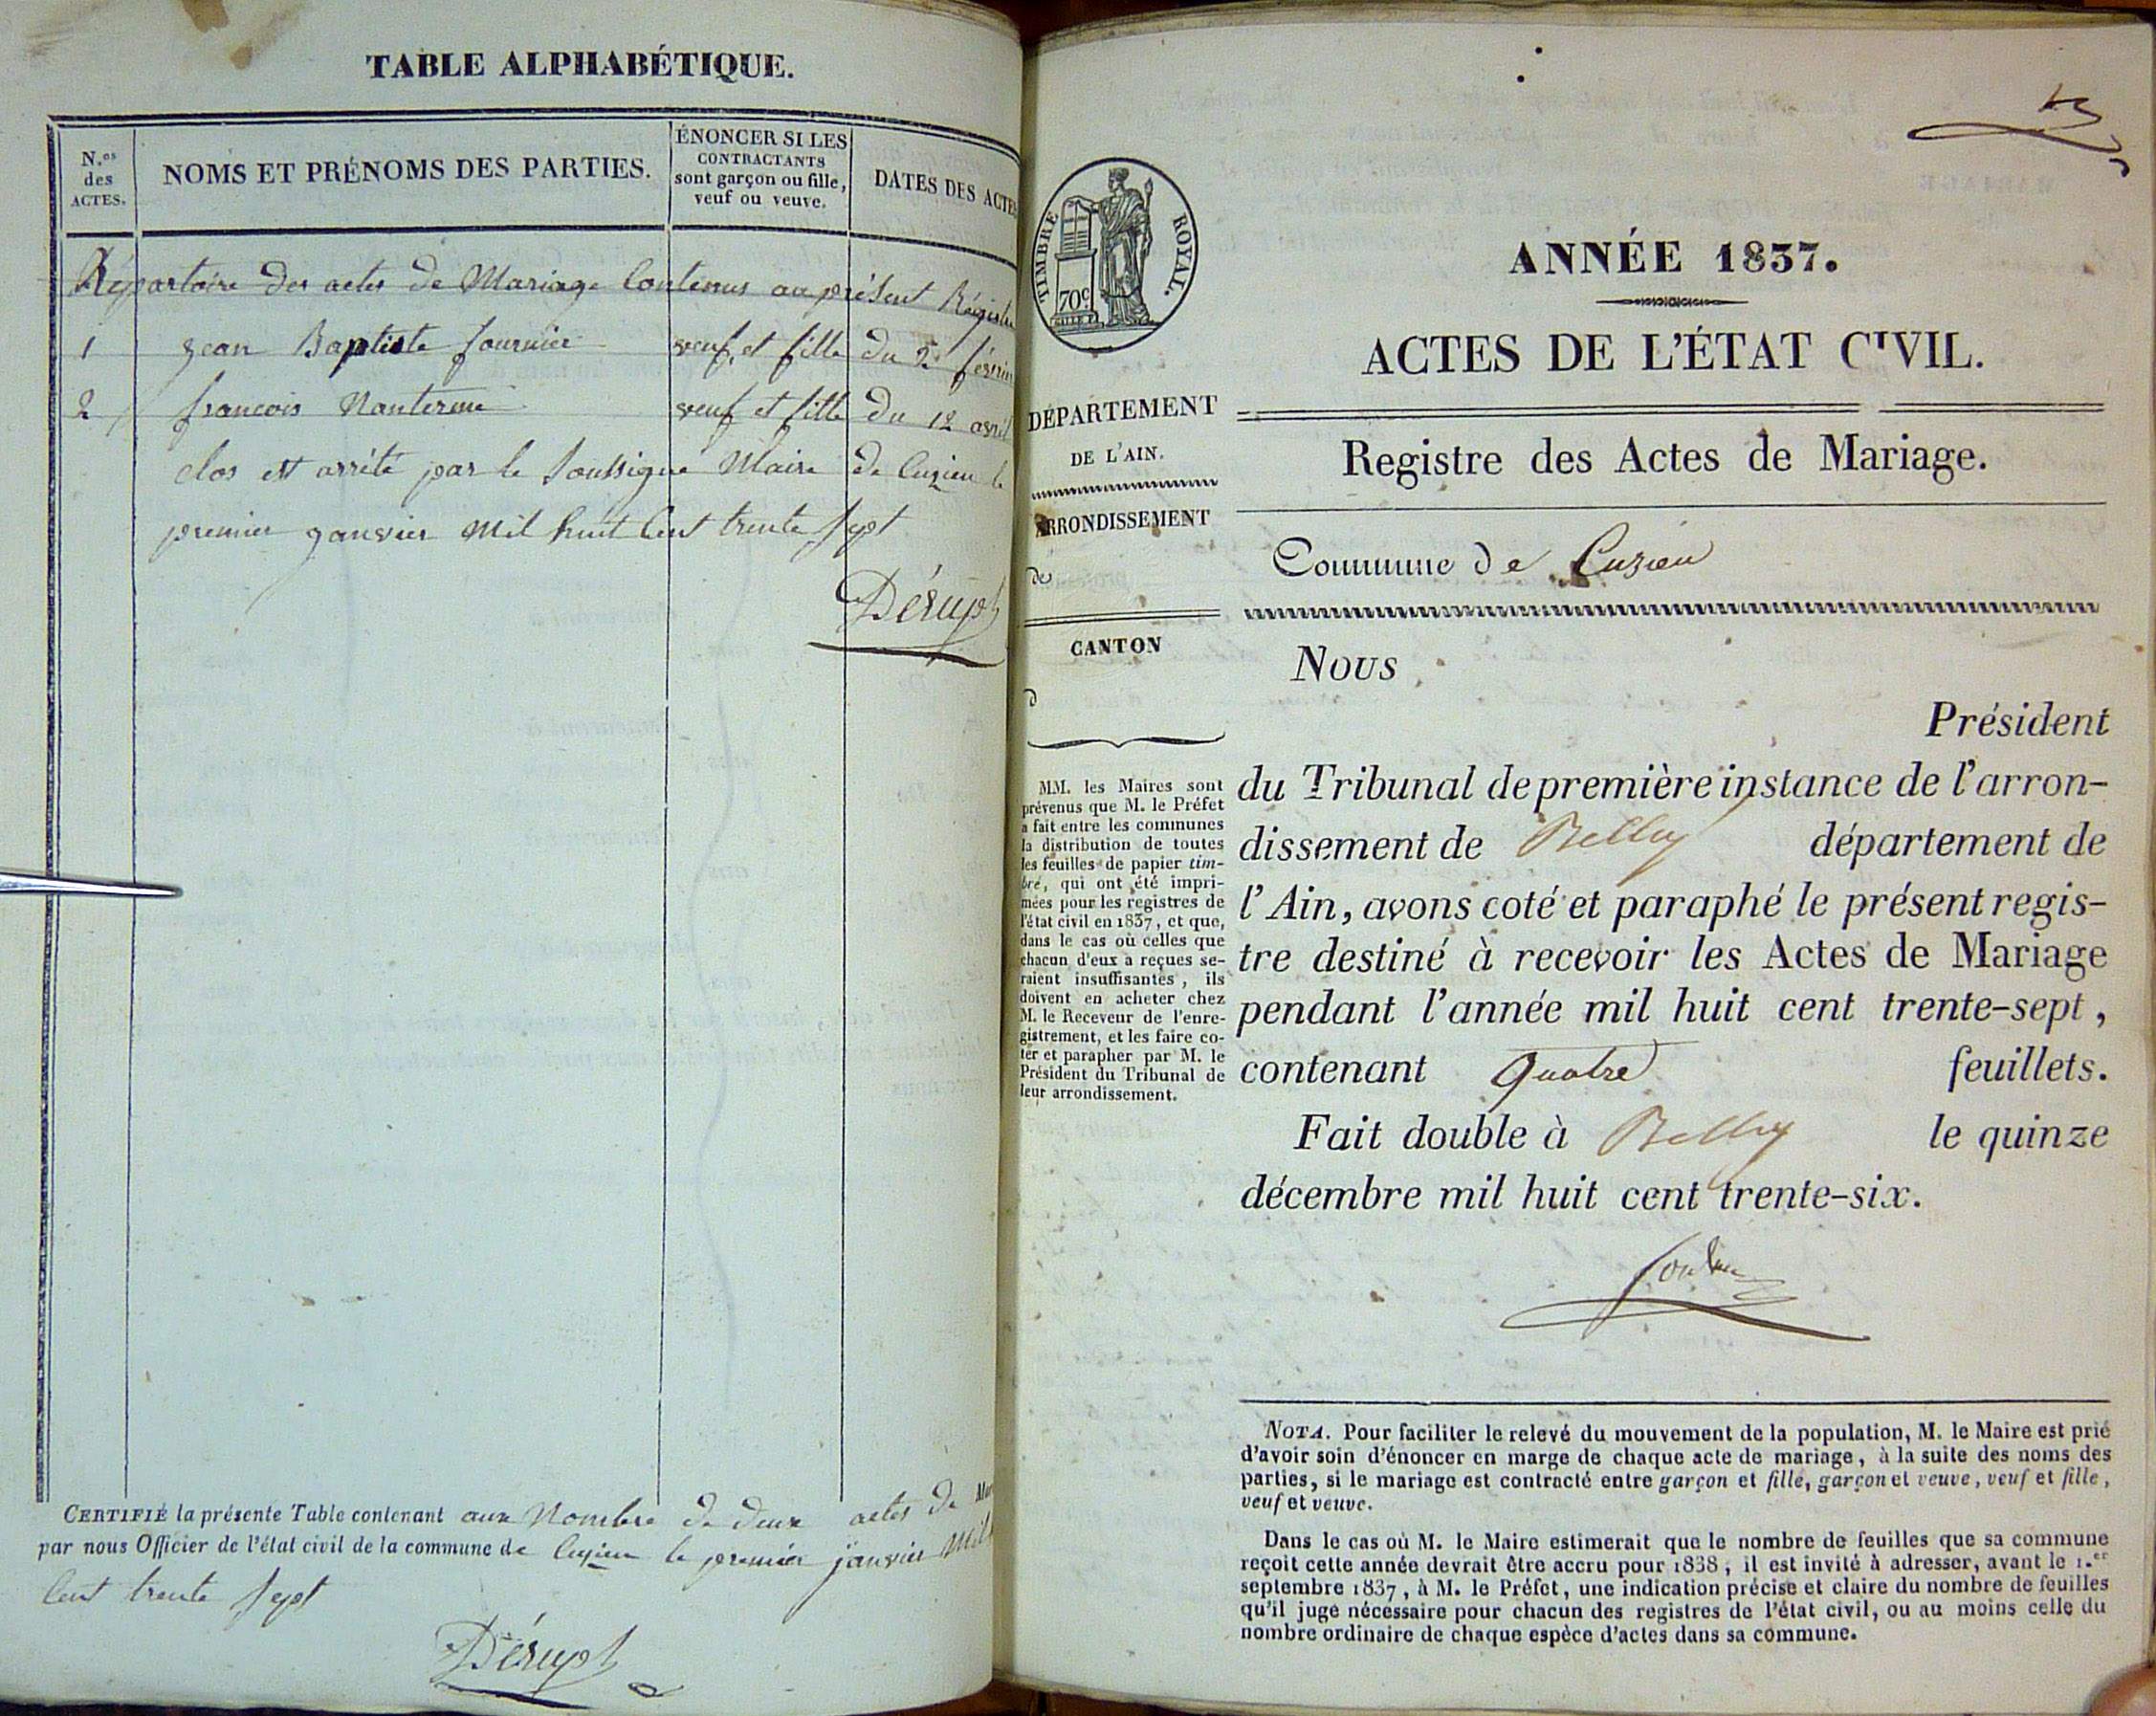 TABLE ALPHABÉTIQUE.
N.os des ACTES.
NOMS ET PRÉNOMS DES PARTIES.
ÉNONCER SI LES
CONTRACTANTS
sont garçon ou fille,
veuf ou veuve.
DATES DES ACTES
Répartoire des actes de Mariage Contenus au présent Régistre
1 jean Baptiste fournier veuf et fille du 2 février
2 francois Nanterme veuf et fille du 12 avril
clos est arrêté par le Soussigné Maire de Cuzieu le
premier janvier mil huit Cent trente Sept
Dérupt
CERTIFIÉ la présente Table contenant aux Nombre de deux actes de
par nous Officier de l'état civil de la commune de Cuzieu le premier janvier Mil
Cent trente Sept
Dérupt
TIMBRE ROYAL.
70c
DÉPARTEMENT
DE L'AIN.
ARRONDISSEMENT
de
CANTON
d
MM. les Maires sont
prévenus que M. le Préfet
a fait entre les communes
la distribution de toutes
les feuilles de papier tim-
bré, qui ont été impri-
mées pour les registres de
l'état civil en 1837, et que,
dans le cas où celles que
chacun d'eux a reçues se-
raient insuffisantes, ils
doivent en acheter chez
M. le Receveur de l'enre-
gistrement, et les faire co-
ter et parapher par M. le
Président du Tribunal de
leur arrondissement.
ANNÉE 1837.
ACTES DE L'ÉTAT CIVIL.
Registre des Actes de Mariage.
Commune de Cuzieu
Nous
Président
du Tribunal de première instance de l'arron-
dissement de Belley département de
l'Ain, avons coté et paraphé le présent regis-
tre destiné à recevoir les Actes de Mariage
pendant l'année mil huit cent trente-sept,
contenant Quatre feuillets.
Fait double à Belley le quinze
décembre mil huit cent trente-six.
NOTA. Pour faciliter le relevé du mouvement de la population, M. le Maire est prié
d'avoir soin d'énoncer en marge de chaque acte de mariage, à la suite des noms des
parties, si le mariage est contracté entre garçon et fille, garçon et veuve, veuf et fille,
veuf et veuve.
Dans le cas où M. le Maire estimerait que le nombre de feuilles que sa commune
reçoit cette année devrait être accru pour 1838, il est invité à adresser, avant le 1.er
septembre 1837, à M. le Préfet, une indication précise et claire du nombre de feuilles
qu'il juge nécessaire pour chacun des registres de l'état civil, ou au moins celle du
nombre ordinaire de chaque espèce d'actes dans sa commune.